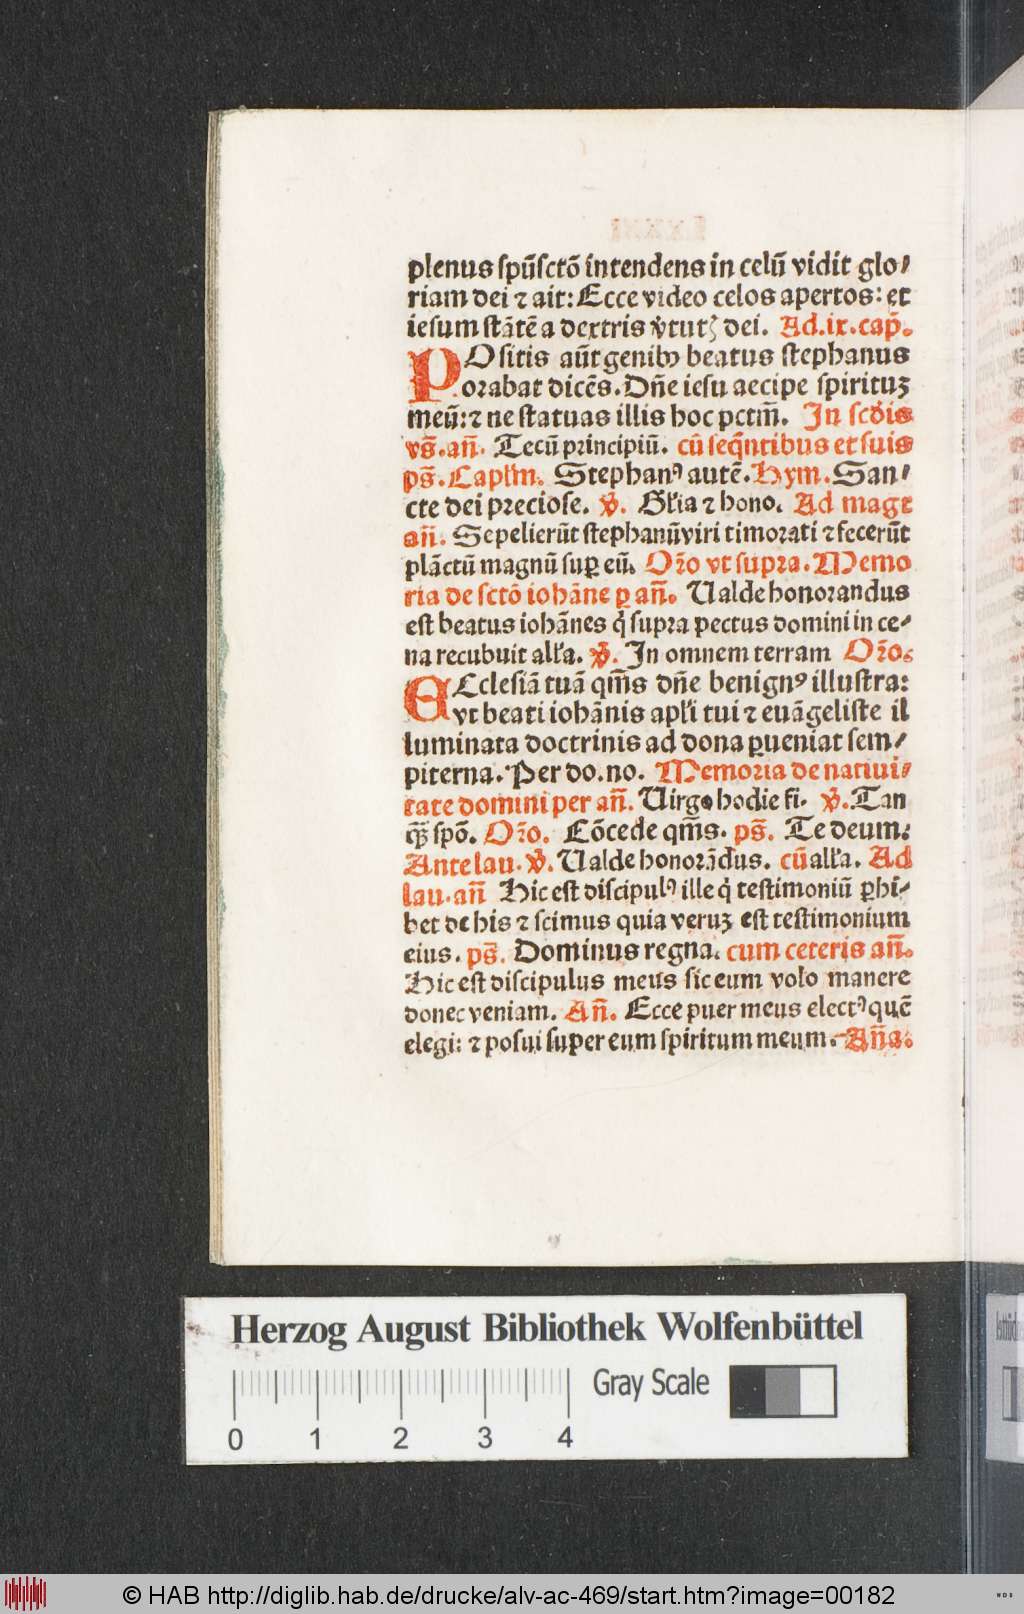 plenus spūsctō intendens in celū vidit glo⸗
riam dei ⁊ ait: Ecce video celos apertos: et
iesum stātē a dextris v̄tutꝫ dei. Ad.ix.cap̄.
POsitis aūt genibꝰ beatus stephanus
orabat dicēs. Dn̄e iesu accipe spirituꝫ
meū: ⁊ ne statuas illis hoc pctm̄. In scd̓is
vs̄. an̄. Tecū principiū. cū seq̄ntibus et suis
ps̄. Capłm. Stephanꝰ autē. Hym. San⸗
cte dei preciose. v̄. Głia ⁊ hono. Ad magt
an̄. Sepelierūt stephanū viri timorati ⁊ fecerūt
plāctū magnū suꝑ eū. Or̄o vt supra. Memo
ria de sctō iohāne ꝑ an̄. Ualde honorandus
est beatus iohānes q̇ supra pectus domini in ce⸗
na recubuit alła. v̄. In omnem terram Or̄o.
ECclesiā tuā qm̄s dn̄e benignꝰ illustra:
vt beati iohānis apłi tui ⁊ euāgeliste il
luminata doctrinis ad dona ꝑueniat sem⸗
piterna. Per do. no. Memoria de natiui⸗
tate domini per an̄. Uirgo hodie fi. v̄. Tan
qꝫ̄ spō. Or̄o. Cōcede qm̄s. ps̄. Te deum.
Ante lau. v̄. Ualde honorādus. cū alła. Ad
lau. an̄ Hic est discipulꝰ ille q̇ testimoniū ꝑhi⸗
bet de his ⁊ scimus quia veruꝫ est testimonium
eius. ps̄. Dominus regna. cum ceteris an̄.
Hic est discipulus meus sic eum volo manere
donec veniam. An̄. Ecce puer meus electꝰ quē
elegi: ⁊ posui super eum spiritum meum. An̄a.
Herzog August Bibliothek Wolfenbüttel
Gray Scale
0 1 2 3 4
© HAB http://diglib.hab.de/drucke/alv-ac-469/start.htm?image=00182